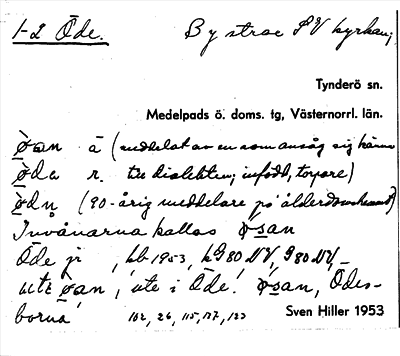 1-2 Öde. By strax SV kyrkan;
Tynderö sn.
Medelpads ö. doms. tg, Västernorrl. län.
ø̀an ā (meddelat av en som ansåg sig känna
ø̀da r. till dialekten; infödd, torpare)
ø̀dn̥ (90-årig meddelare på ålderdomshemmet)
Invånarna kallas øsan
Öde jr , kb 1953, kG 80 NV, G 80 NV,
ute ø̀an, 'ute i Öde'. øsan, 'Ödes-
borna' 102, 26, 115, 117, 123
Sven Hiller 1953